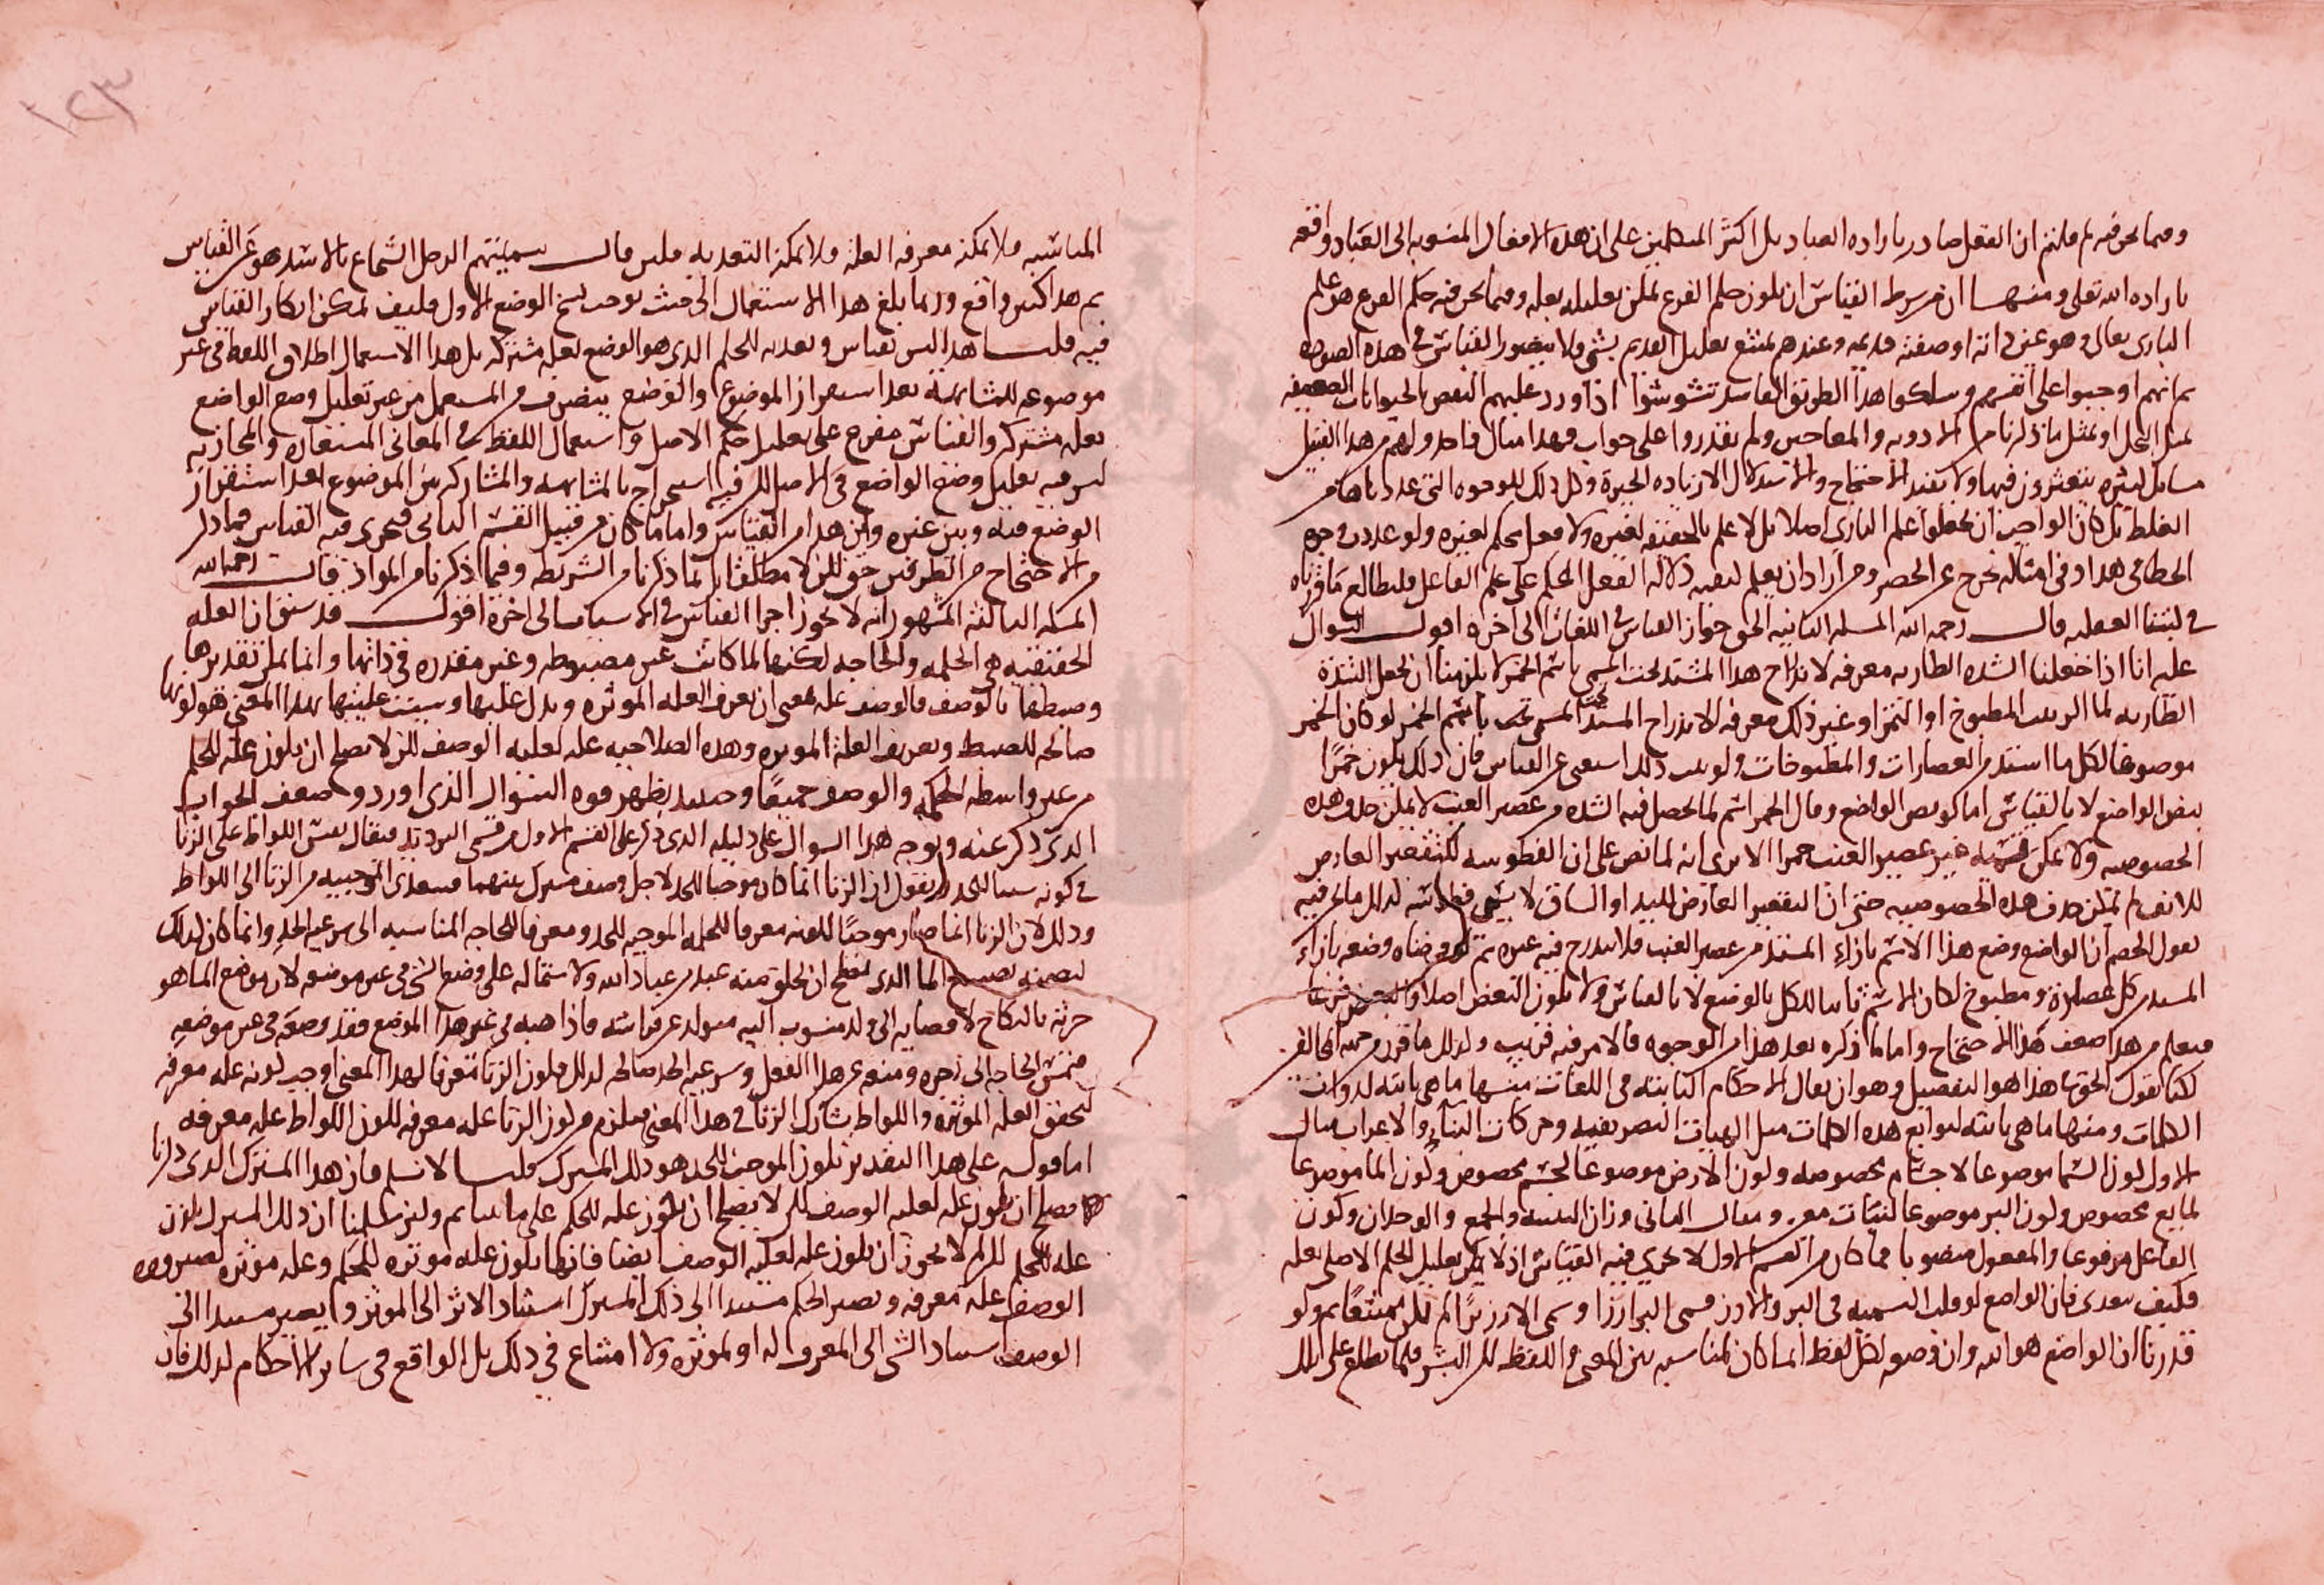 وفيما نحن فيه لم قلتم ان الفعل صادر بارادة العباد بل اكثر المتكلمين على ان هذه الافعال المنسوبة الى العباد واقعة
بارادة الله تعلى ومنها ان من شرط القياس ان يكون حكم الفرع يمكن تعليله بعلة وفيما نحن فيه حكم الفرع هو علم
البارى تعالى وهو عين ذاته او صفته قديمة وعندهم يمتنع تعليل القديم بشى ولا يتصور القياس فى هذه الصورة
ثم انهم اوجبوا على انفسهم وسلكوا هذا الطريق الفاسد تشوشوا اذا ورد عليهم النقض بالحيوانات الضعيفة
مثل النحل او بمثل ما ذكرنا من الادوية والمعاجين ولم يقدروا على جواب وهذا مثال واحد ولهم من هذا القبيل
مسائل كثيره يتعثرون فيها ولا يفيد الاحتجاج والاستدلال الا زيادة الحيرة وكل ذلك للوجوه التى عددناها من
الغلط بل كان الواجب ان يجعلوا علم البارى اصلا بل لا علم بالحقيقة لغيره ولا فعل محكم لغيره ولو عددت وجوه
الخطا فى هذا وفى امثاله نخرج عن الحصر ومن اراد ان يعلم كيفية دلالة الفعل المحكم على علم الفاعل فليطالع ما قررناه
فى كتبنا العقلية قال رحمه الله المسلة الثانية الحق جواز القياس فى اللغات الى اخره اقول السوال
عليه انا اذا جعلنا الشدة الطارية معرفة لاندراج هذا المشتد تحت المسمى باسم الخمر لا يلزمنا ان نجعل الشدة
الطارية لما الزبيب المطبوخ او التمر او غير ذلك معرفة لاندراج المشتد تحت المسمى باسم الخمر لو كان الخمر
موضوعا لكل ما اشتد من العصارات والمطبوخات ولو ثبت ذلك استغنى عن القياس فان ذلك يكون خمرا
بنص الواضع لا بالقياس اما لو نص الواضع وقال الخمر اسم لما يحصل فيه الشدة من عصير العنب لا يمكن حذف هذه
الخصوصية ولا يمكن تسمية غير عصير العنب خمرا الا ترى انه لما نص على ان الفطوسة لتقعير العارض
للانف لم يمكن حذف هذه الخصوصية حتى ان التقعير العارض لليد او الساق لا يسمى فطوسة لذلك ما نحن فيه
نقول الخصم ان الواضع وضع هذا الاسم بازاء المشتد من عصير العنب فلا يندرج فيه غيره ثم لو فرضناه وضعه بازاء
المشتد من كل عصارة ومطبوخ لكان الاسم ثابتا للكل بالوضع لا بالقياس ولا يكون البعض اصلا والبعض فرعا
فيعلم من هذا ضعف هذا الاحتجاج واما ما ذكره بعد هذا من الوجوه فالامر فيه قريب ولذلك ما قرر من جهة المخالف
لكنا نقول الحق هاهنا هو التفصيل وهو ان يقال الاحكام الثابتة فى اللغات منها ما هى ثابتة لذوات
الكلمات ومنها ما هى ثابتة لتوابع هذه الكلمات مثل الهيات التصريفية وحركات البناء والاعراب مثال
الاول كون السما موضوعا لاجسام مخصوصة وكون الارض موضوعا لجسم مخصوص وكون الما موضوعا
لمايع مخصوص وكون البر موضوعا لنبات معين ومثال الثانى وزان التثنية والجمع والوحدان وكون
الفاعل مرفوعا والمفعول منصوبا فما كان من القسم الاول لا يجرى فيه القياس اذ لا يمكن تعليل الحكم الاصلى بعلة
فكيف يتعدى فان الواضع لو قلب التسمية فى البر والارز فسمى البر ارزا وسمى الارز برا لم يكن ممتنعا ثم ولو
قدرنا ان الواضع هو الله وان وضعه لكل لفظ انما كان لمناسبة بين المعنى واللفظ لكن البشر قلما يطلع على تلك
المناسبة فلا يمكنه معرفة العلة فلا يمكنه التعدية فلين قال تسميتهم الرجل الشجاع بالاسد هو عين القياس
ثم هذا كثير واقع وربما بلغ هذا الاستعمال الى حيث يوجب نسخ الوضع الاول فكيف يمكن انكار القياس
فيه قلنا هذا ليس بقياس وتعدية للحكم الذى هو الوضع بعلة مشتركة بل هذا الاستعمال اطلاق اللفظ فى غير
موضوعه للمشابهة بعد استمرار الموضوع والوضع بتصرف من المستعمل من غير تعليل وضع الواضع
بعلة مشتركة والقياس متفرع على تعليل حكم الاصل واستعمال اللفظ فى المعانى المستعارة والمجازية
ليس فيه تعليل وضع الواضع فى الاصل لكن فيه استخراج بالمشابهة والمشاركة بين الموضوع بعد استقرار
الوضع فيه وبين غيره واين هذا من القياس واما ما كان من قبيل القسم الثانى فيجرى فيه القياس فيما ذكر
من الاحتجاج من الطرفين حق لكن لا مطلقا بل لما ذكرنا من الشريطة وفيما ذكرنا من المواد قال رحمه الله
المسلة الثالثة المشهور انه لا يجوز اجرا القياس فى الاسباب الى اخره اقول قد سبق ان العلة
الحقيقية هى الحكمة والحاجة لكنها لما كانت غير مضبوطة وغير مقدرة فى ذاتها وانما يمكن تقديرها
وضبطها بالوصف فالوصف علة بمعنى ان يعرف العلة الموثرة ويدل عليها وسبب عليتها بهذا المعنى هو كونها
صالحة للضبط وتعريف العلة الموثرة وهذه الصلاحية علة لعلية الوصف لكن لا يصلح ان يكون علة للحكم
من غير واسطة الحكمة والوصف جميعا وحينئذ يظهر قوة السوال الذى اورد وضعف الجواب
الذى ذكر عنه وتوجه هذا السوال على دليله الذى ذكر على القسم الاول من قسمى الترديد فيقال نقيس اللواط على الزنا
فى كونه سببا للحد بان نقول ان الزنا انما كان موجبا للحد لاجل وصف مشترك بينهما فيتعدى الموجبية من الزنا الى اللواط
وذلك لان الزنا انما صار موجبا لكونه معرفا للحكمة الموجبة للحد ومعرفا للحاجة المناسبة الى شرعية الحد وانما كان لذلك
لتضمنه تضييع الما الذى يصلح ان يخلق منه عبد من عباد الله ولاشتماله على وضع الشى فى غير موضعه لان موضع الما هو
حرثه بالنكاح لافضايه الى ولد منسوب اليه متولد عن فراشه فاذا صبه فى غير هذا الموضع فقد وضعه فى غير موضعه
فتمس الحاجة الى زجره ومنعه عن هذا الفعل وشرعية الحد صالحة لذلك فكون الزنا معرفا لهذا المعنى اوجب كونه علة معرفة
لتحقق العلة الموثرة واللواط شارك الزنا فى هذا المعنى فيلزم من كون الزنا علة معرفة كون اللواط علة معرفة
اما قوله على هذا التقدير يكون الموجب للحد هو ذلك المشترك قلنا لا نسلم فان هذا المشترك الذى ذكرنا
يصلح ان يكون علة لعلية الوصف لكن لا يصلح ان يكون علة للحكم على ما بينا ثم ولين سلمنا ان ذلك المشترك يكون
علة للحكم لكن لم لا يجوز ان يكون علة لعلية الوصف ايضا فانها يكون علة موثرة للحكم وعلة موثرة لصيرورة
الوصف علة معرفة ويصير الحكم مستندا الى ذلك المشترك استناد الاثر الى الموثر وايضا يصير مستندا الى
الوصف استناد الشى الى المعرف له او لموثره ولا امتناع فى ذلك بل الواقع فى ساير الاحكام لذلك فان
١٢٣